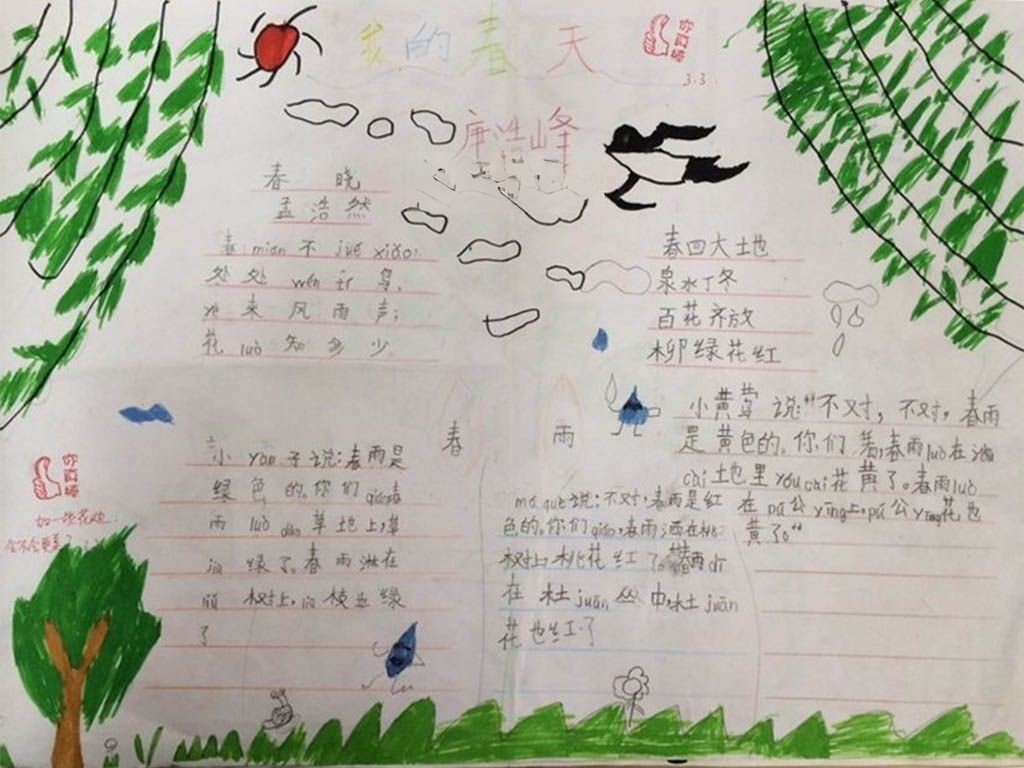 我的春天
你真棒
3.3.
唐浩峰
春 晓
孟浩然
春mian不jué xiǎo,
处处wén tí鸟,
ye来风雨声;
花luò知多少
春回大地
泉水丁冬
百花齐放
柳绿花红
春 雨
小yàn子说:春雨是
绿色的。你们qiáo春
雨luò dào草地上,草
绿了。春雨淋在
树上,
绿
了
má què说:不对,春雨是红
色的。你们qiáo,春雨洒在桃
树上,桃花红了。春雨di
在杜juān丛中,杜juān
花也红了
小黄莺说:"不对,不对,春雨
是黄色的。你们看,春雨luò在油
cài土地里yóu cài花黄了。春雨luò
在pú公yīng上,pú公yīng花也
黄了。"
你真棒
加一些花边
会不会更美?